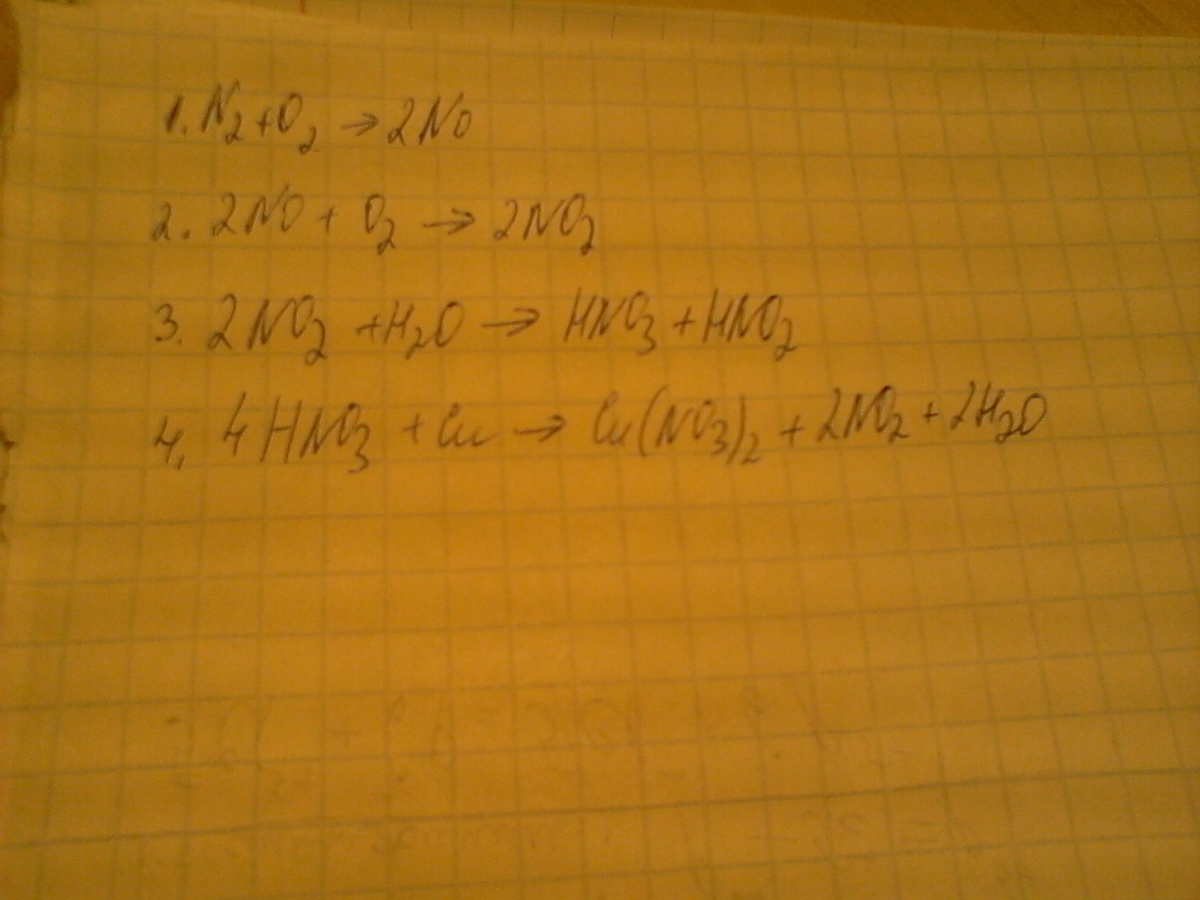 1. N₂+O₂ → 2NO
2. 2NO + O₂ → 2NO₂
3. 2NO₂ +H₂O → HNO₃ + HNO₂
4. 4HNO₃ + Cu → Cu(NO₃)₂ + 2NO₂ + 2H₂O